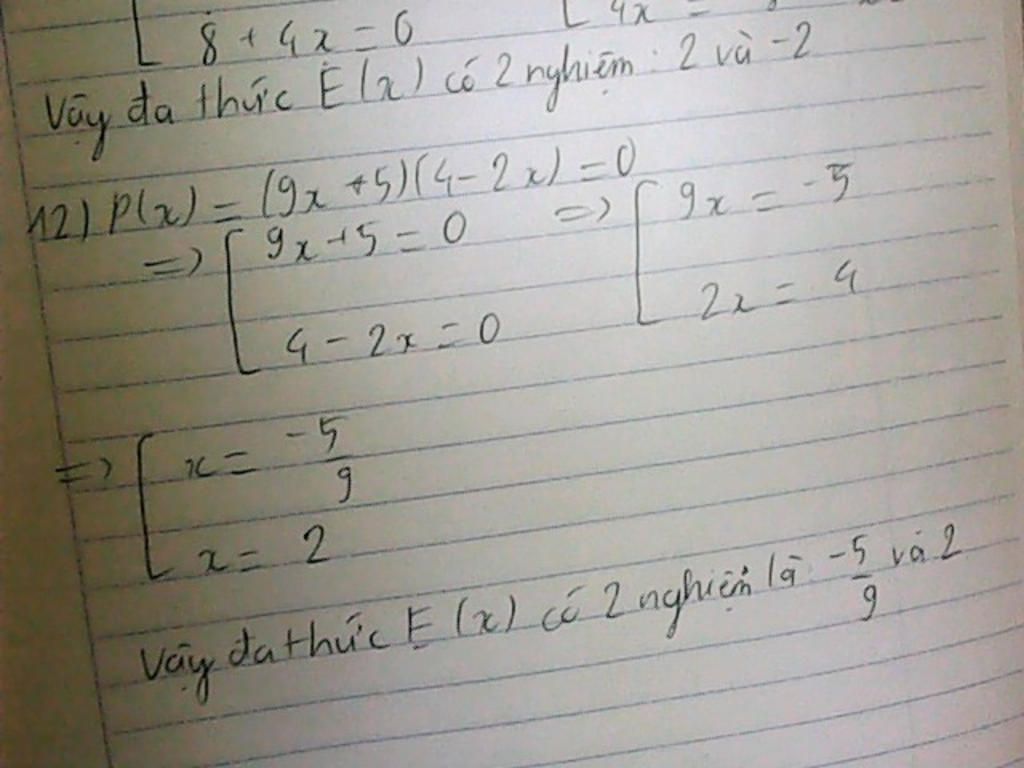 8 + 4x = 0
4x =
Vậy đa thức E(x) có 2 nghiệm : 2 và -2
12) P(x) = (9x + 5)(4 - 2x) = 0
=> [ 9x + 5 = 0 => [ 9x = -5
4 - 2x = 0 2x = 4
=> [ x = -5/9
x = 2
Vậy đa thức E(x) có 2 nghiệm là : -5/9 và 2